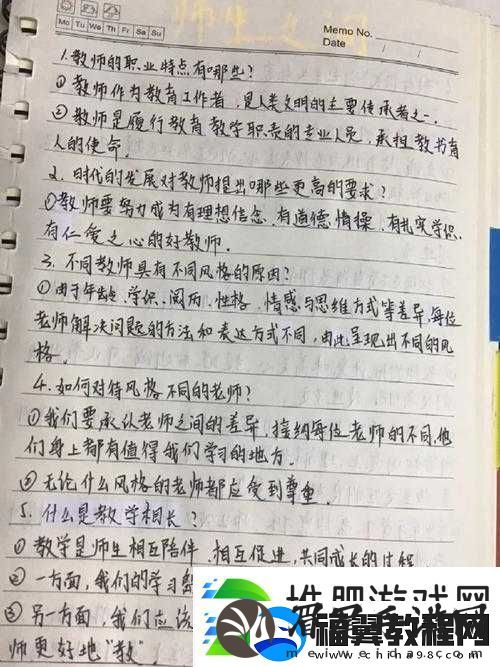 师生之间
Memo No.
Mo Tu We Th Fr Sa Su
Date / /
1.教师的职业特点有哪些?
①教师作为教育工作者,是人类文明的主要传承者之一.
②教师是履行教育教学职责的专业人员,承担教书育
人的使命.
2.时代的发展对教师提出哪些更高的要求?
①教师要努力成为有理想信念.有道德情操.有扎实学识.
有仁爱之心的好教师.
3.不同教师具有不同风格的原因?
①由于年龄.学识.阅历.性格.情感与思维方式等差异,每位
老师解决问题的方法和表达方式不同,由此呈现出不同的风
格.
4.如何对待风格不同的老师?
①我们要承认老师之间的差异,接纳每位老师的不同,他
们身上都有值得我们学习的地方.
②无论什么风格的老师都应受到尊重.
5.什么是教学相长?
①教学是师生相互陪伴.相互促进,共同成长的过程
②一方面,我们的学习
③另一方面,我们应该
师更好地"教"
福翼教程网
www.china98s.com